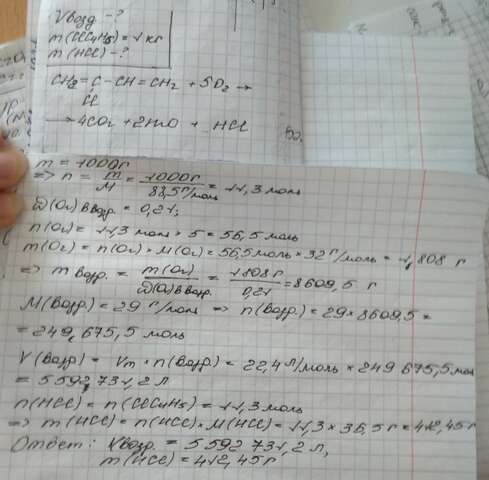 Vвозд. - ?
m(ClC4H5) = 1 кг
m(HCl) - ?
CH2 = C - CH = CH2 + 5O2 →
Cl
→ 4CO2 + 2H2O + HCl
m = 1000 г
=> n = m/M = 1000 г / 88,5 г/моль = 11,3 моль
D(O2) в возд. = 0,21;
n(O2) = 11,3 моль × 5 = 56,5 моль
m(O2) = n(O2) × M(O2) = 56,5 моль × 32 г/моль = 1,808 г
=> m возд. = m(O2) / D(O2) в возд. = 1808 г / 0,21 = 8609,5 г
M(возд.) = 29 г/моль => n(возд.) = 29 × 8609,5 =
= 249,675,5 моль
V(возд.) = Vm • n(возд.) = 22,4 л/моль × 249 675,5 моль
= 5 592 731,2 л
n(HCl) = n(ClC4H5) = 11,3 моль
=> m(HCl) = n(HCl) × M(HCl) = 11,3 × 36,5 г = 412,45 г
Ответ: Vвозд. = 5 592 731,2 л,
m(HCl) = 412,45 г